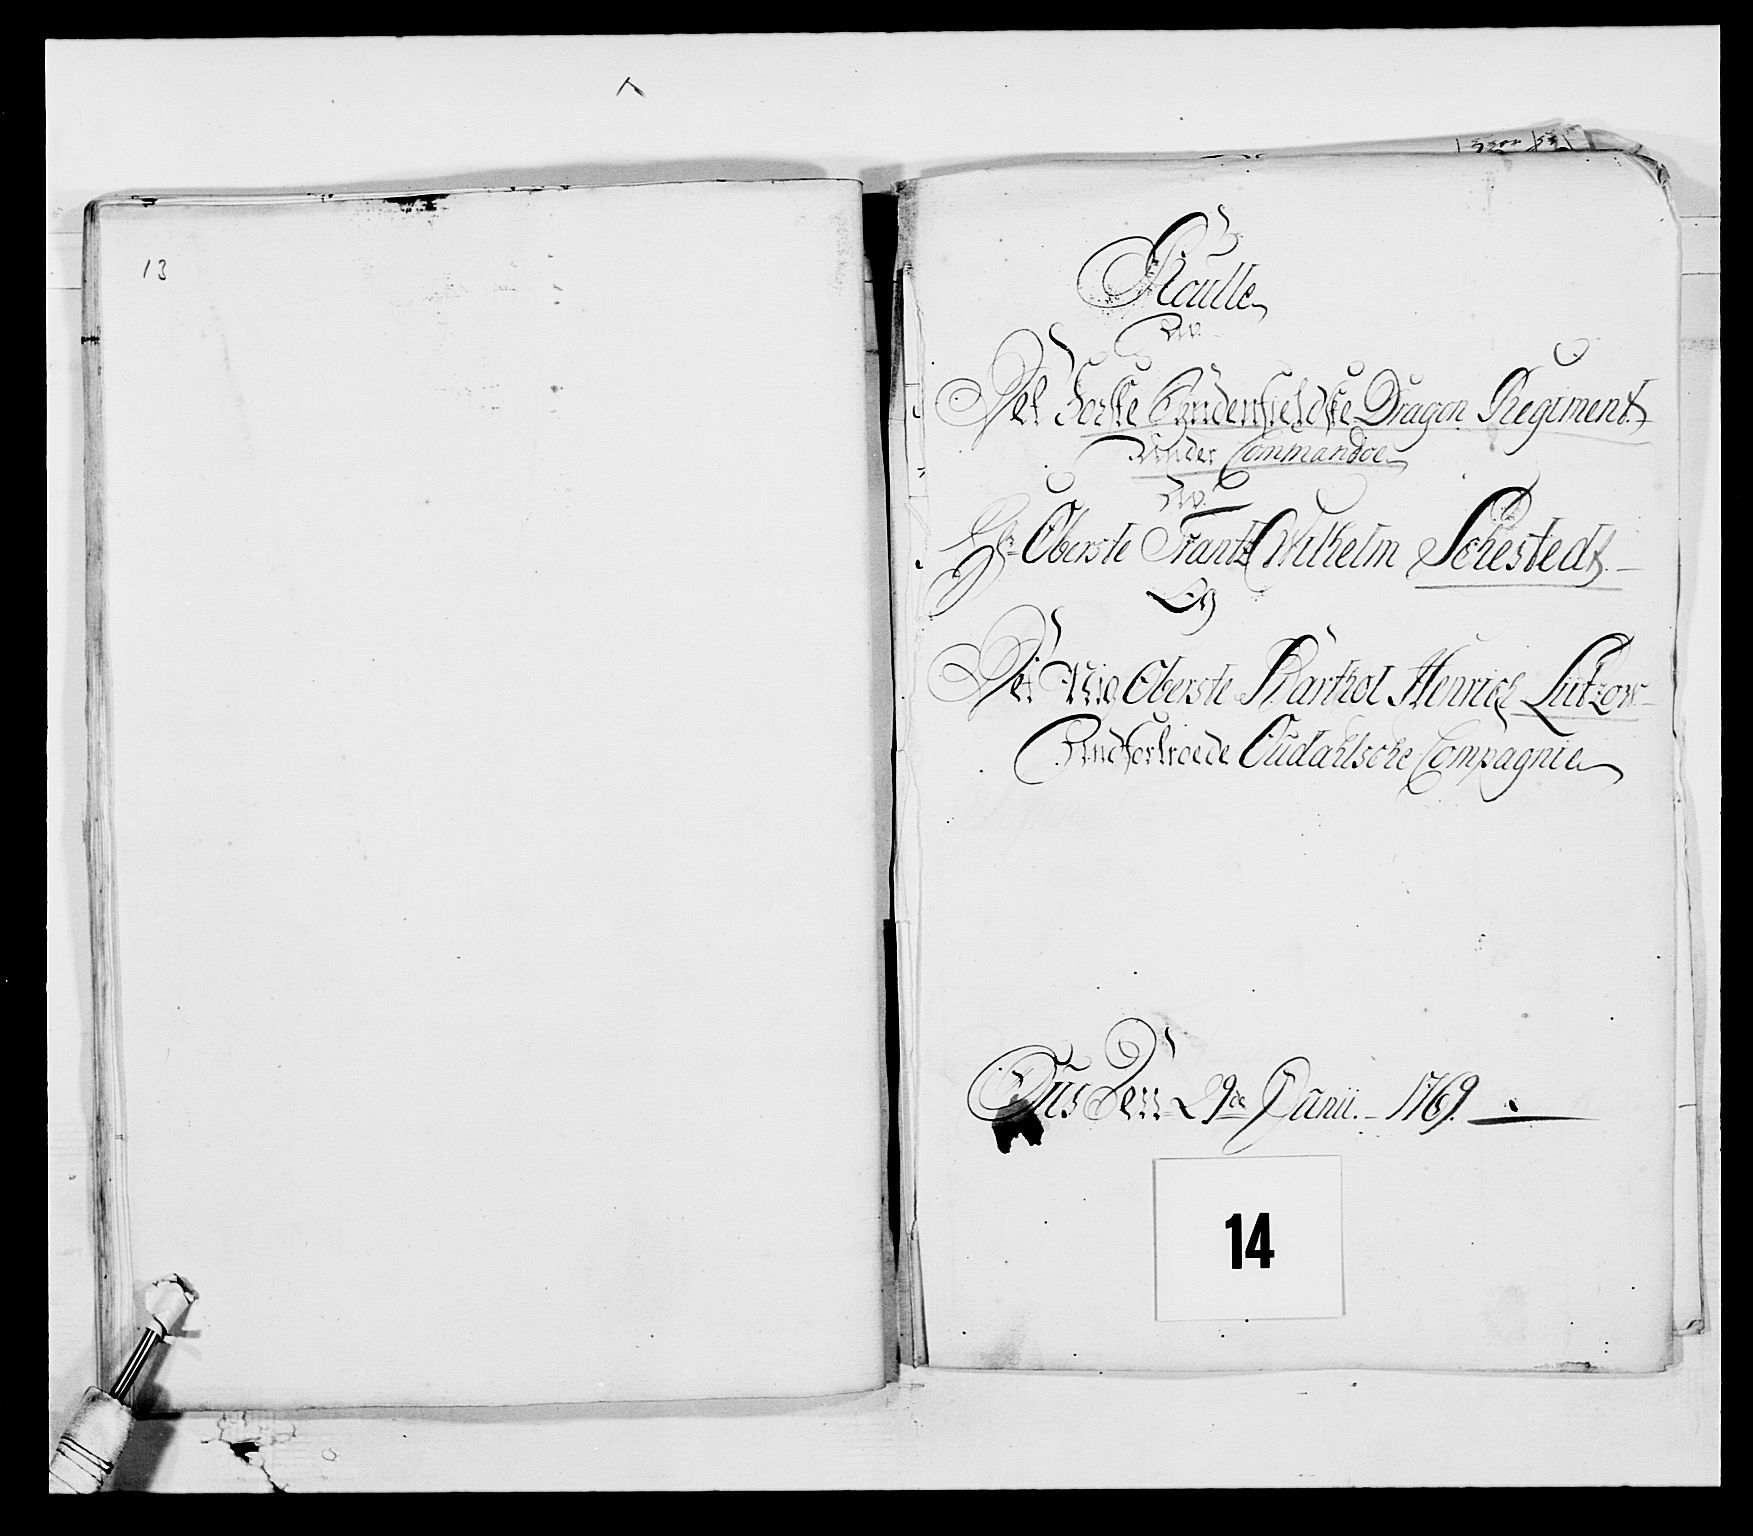 13
Roulle
Av
Det Første Syndenfieldske Dragon Regiment
Under Commandoe
Av
Hr Oberste Frantz Wilhelm Schestedt
Og
Det Mig Oberste Barthol Henrich Lützow
Anfortroede Oudahlsche Compagnie
Huus Den 29de Junii 1769
14